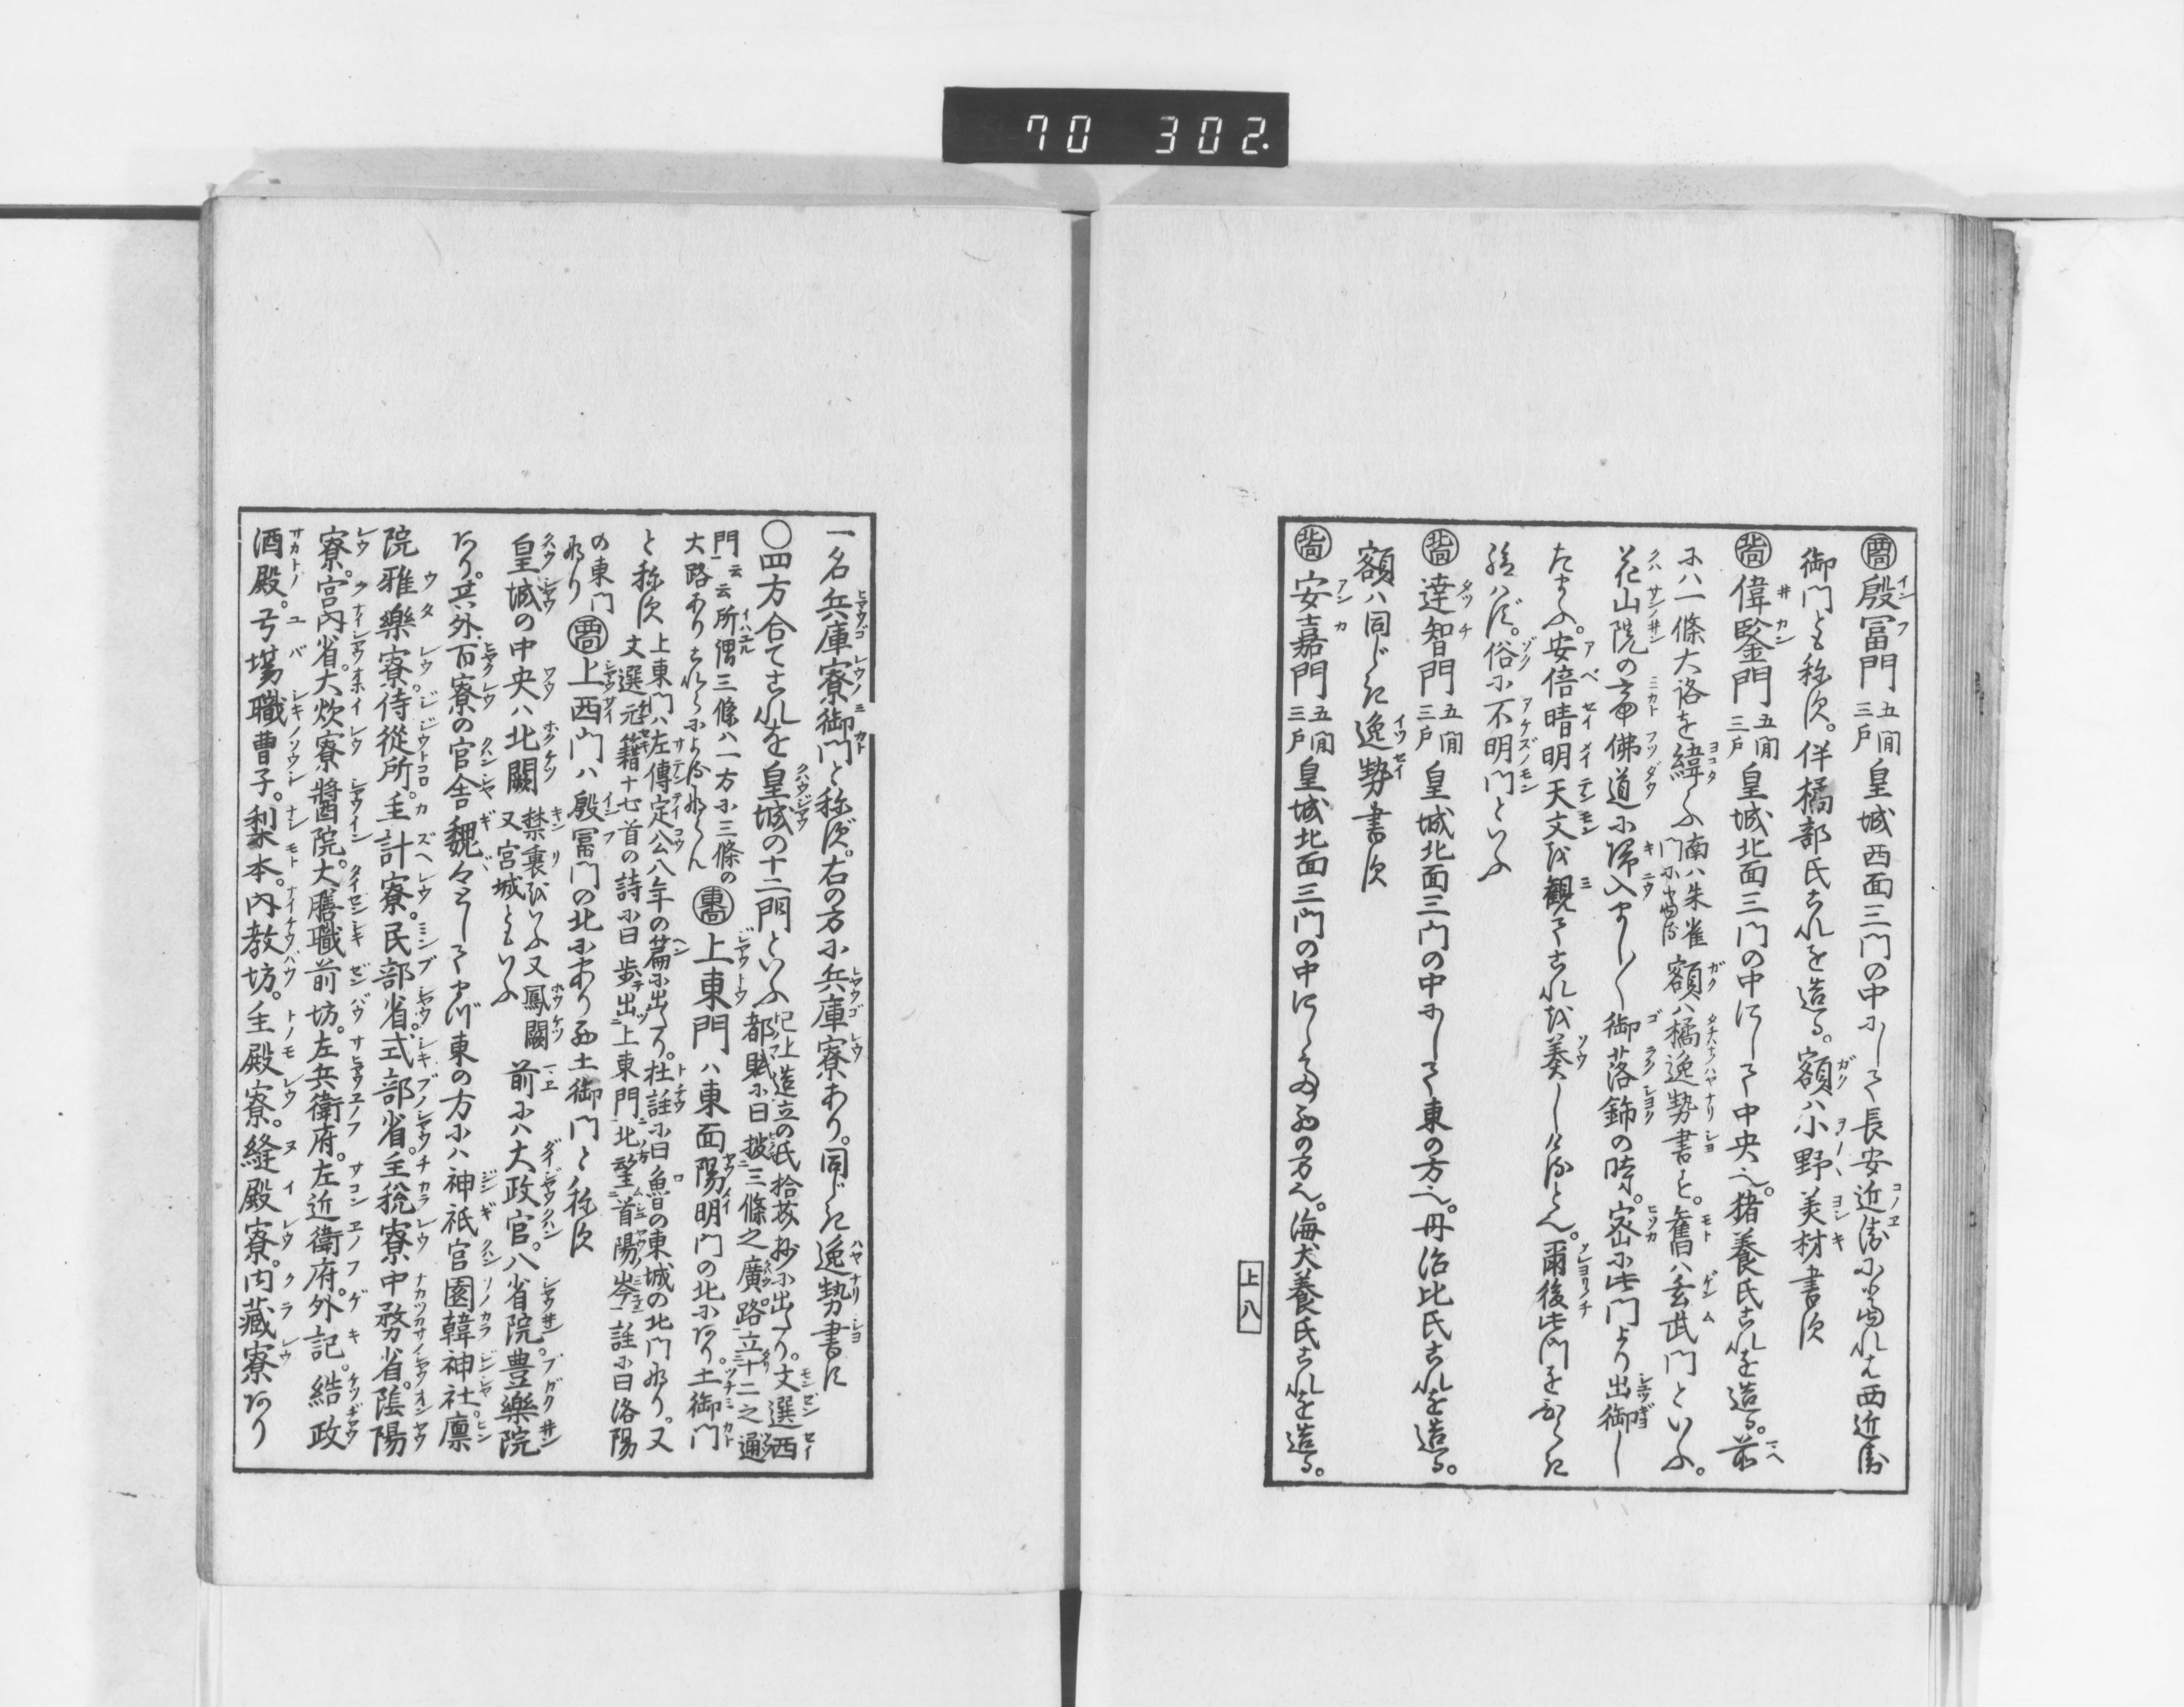 70 302
西面 殷富門 五間三戸 皇城西面三門の中にして長安近衛に当れは西近衛
御門とも称す。伴橘部氏これを造る。額ハ小野美材書す
北面 偉鍳門 五間三戸 皇城北面三門の中にして中央也。猪養氏これを造る。前
にハ一條大路を緯たふ 南ハ朱雀門に当る 額ハ橘逸勢書と。舊ハ玄武門といふ。
花山院の帝佛道に帰入まし〱御落餝の時。密に此門より出御し
たまふ。安倍晴明天文を観てこれを奏しけるとん。爾後此門を
給ハず。俗に不明門といふ
北面 達智門 五間三戸 皇城北面三門の中にして東の方也。丹治比氏これを造る。
額ハ同じき逸勢書す
北面 安嘉門 五間三戸 皇城北面三門の中にして西の方也。海犬養氏これを造る。
上八
一名兵庫寮御門と称ず。右の方に兵庫寮あり。同じき逸勢書に
〇四方合てこれを皇城の十二門といふ 已上造立の氏拾芥抄に出たり。文選西都賦に曰披三條之廣路立十二之通
門云云所謂三條ハ一方に三條の大路ありこれらによるならん 東面 上東門ハ東面陽明門の北にあり。土御門
と称す 上東門ハ左傳定公八年の篇に出たり。杜註に曰魯の東城の北門なり。又文選元籍十七首の詩に曰歩出上東門北望首陽岑註に曰洛陽
の東門なり 西面 上西門ハ殷富門の北にあり西土御門と称す
皇城の中央ハ北闕 禁裏をいふ又鳳闕又宮城ともいふ 前にハ大政官。八省院。豊樂院
あり。其外百寮の官舎巍々としてまづ東の方にハ神祇官園韓神社。廪
院雅樂寮。侍從所。主計寮。民部省。式部省。主税寮中務省。陰陽
寮。宮内省。大炊寮醬院。大膳職前坊。左兵衛府。左近衛府。外記。結政
酒殿。弓場職曹子。梨本。内教坊。主殿寮。縫殿寮。内蔵寮あり